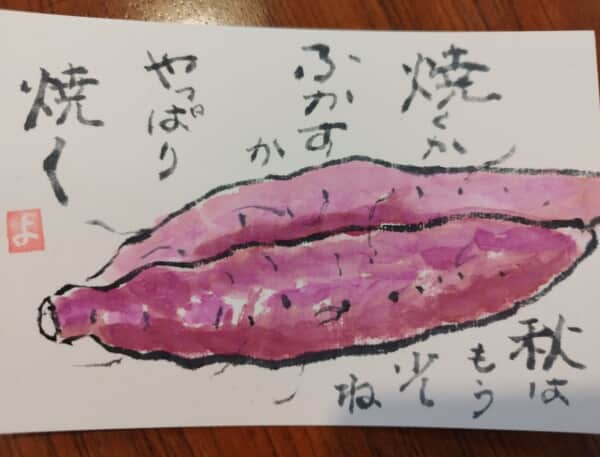 焼くか
ふかす
か
やっぱり
焼く
よ
秋は
もう
少し
ね